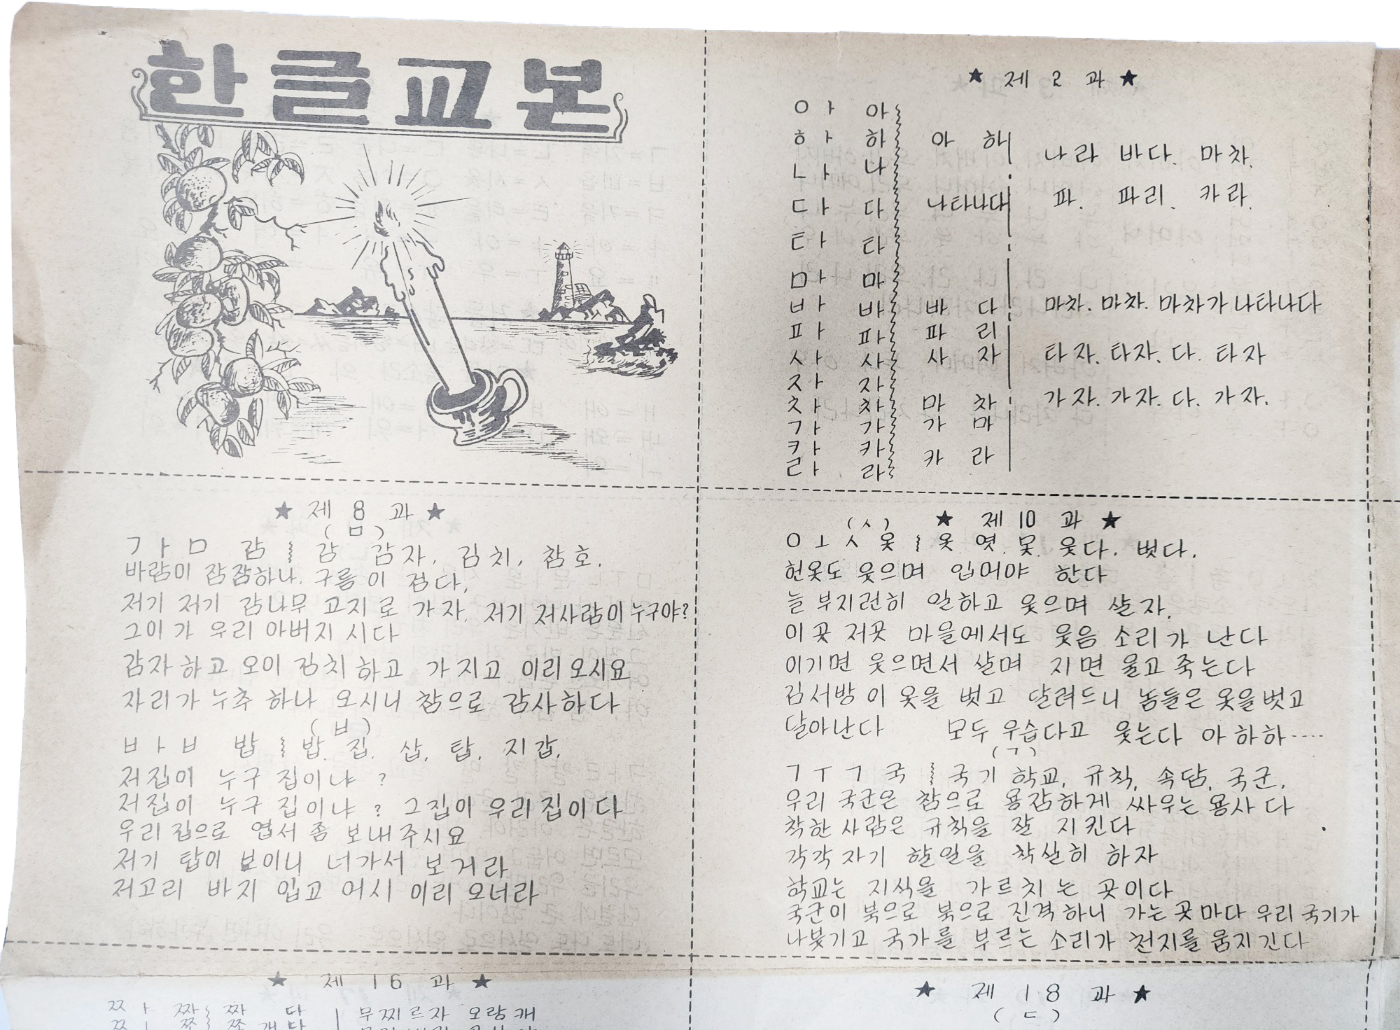 한글교본
★ 제 2 과 ★
ㅇㅏ 아
ㅎㅏ 하 아 하
ㄴㅏ 나 나라 바다. 마차.
ㄷㅏ 다 나타나다 파. 파리. 카라.
ㅌㅏ 타
ㅁㅏ 마
ㅂㅏ 바 바 다 마차. 마차. 마차가 나타나다
ㅍㅏ 파 파 리
ㅅㅏ 사 사 자 타자. 타자. 다. 타자
ㅈㅏ 자
ㅊㅏ 차 마 차 가자. 가자. 다. 가자.
ㄱㅏ 가 가 마
ㅋㅏ 카 카 라
ㄹㅏ 라
★ 제 8 과 ★
(ㅁ)
ㄱㅏㅁ 감 감 감자, 김치, 참호.
바람이 잠잠하나. 구름이 검다.
저기 저기 감나무 고지로 가자. 저기 저사람이 누구야?
그이가 우리 아버지시다
감자하고 오이 김치하고 가지고 이리오시요
자리가 누추 하나 오시니 참으로 감사하다
(ㅂ)
ㅂㅏㅂ 밥 밥. 집. 삽, 탑. 지갑.
저집이 누구 집이냐 ?
저집이 누구 집이냐 ? 그집이 우리집이다
우리집으로 엽서 좀 보내주시요
저기 탑이 보이니 너가서 보거라
저고리 바지 입고 어서 이리 오너라
★ 제 10 과 ★
(ㅅ)
ㅇㅗㅅ 옷 옷 엿. 못. 웃다. 벗다.
헌옷도 웃으며 입어야 한다
늘 부지런히 일하고 웃으며 살자.
이곳 저곳 마을에서도 웃음 소리가 난다
이기면 웃으면서 살며 지면 울고 죽는다
김서방이 옷을 벗고 달려드니 놈들은 옷을벗고
달아난다 모두 우습다고 웃는다 아하하....
(ㄱ)
ㄱㅜㄱ 국 국기 학교, 규칙, 속담, 국군.
우리 국군은 참으로 용감하게 싸우는 용사다
착한 사람은 규칙을 잘 지킨다
각각 자기 할일을 착실히 하자
학교는 지식을 가르치는 곳이다
국군이 북으로 북으로 진격하니 가는곳마다 우리 국기가
나붓기고 국가를 부르는 소리가 천지를 움지긴다
★ 제 16 과 ★
ㅉㅏ 짜 짜 다
★ 제 18 과 ★
(ㄷ)